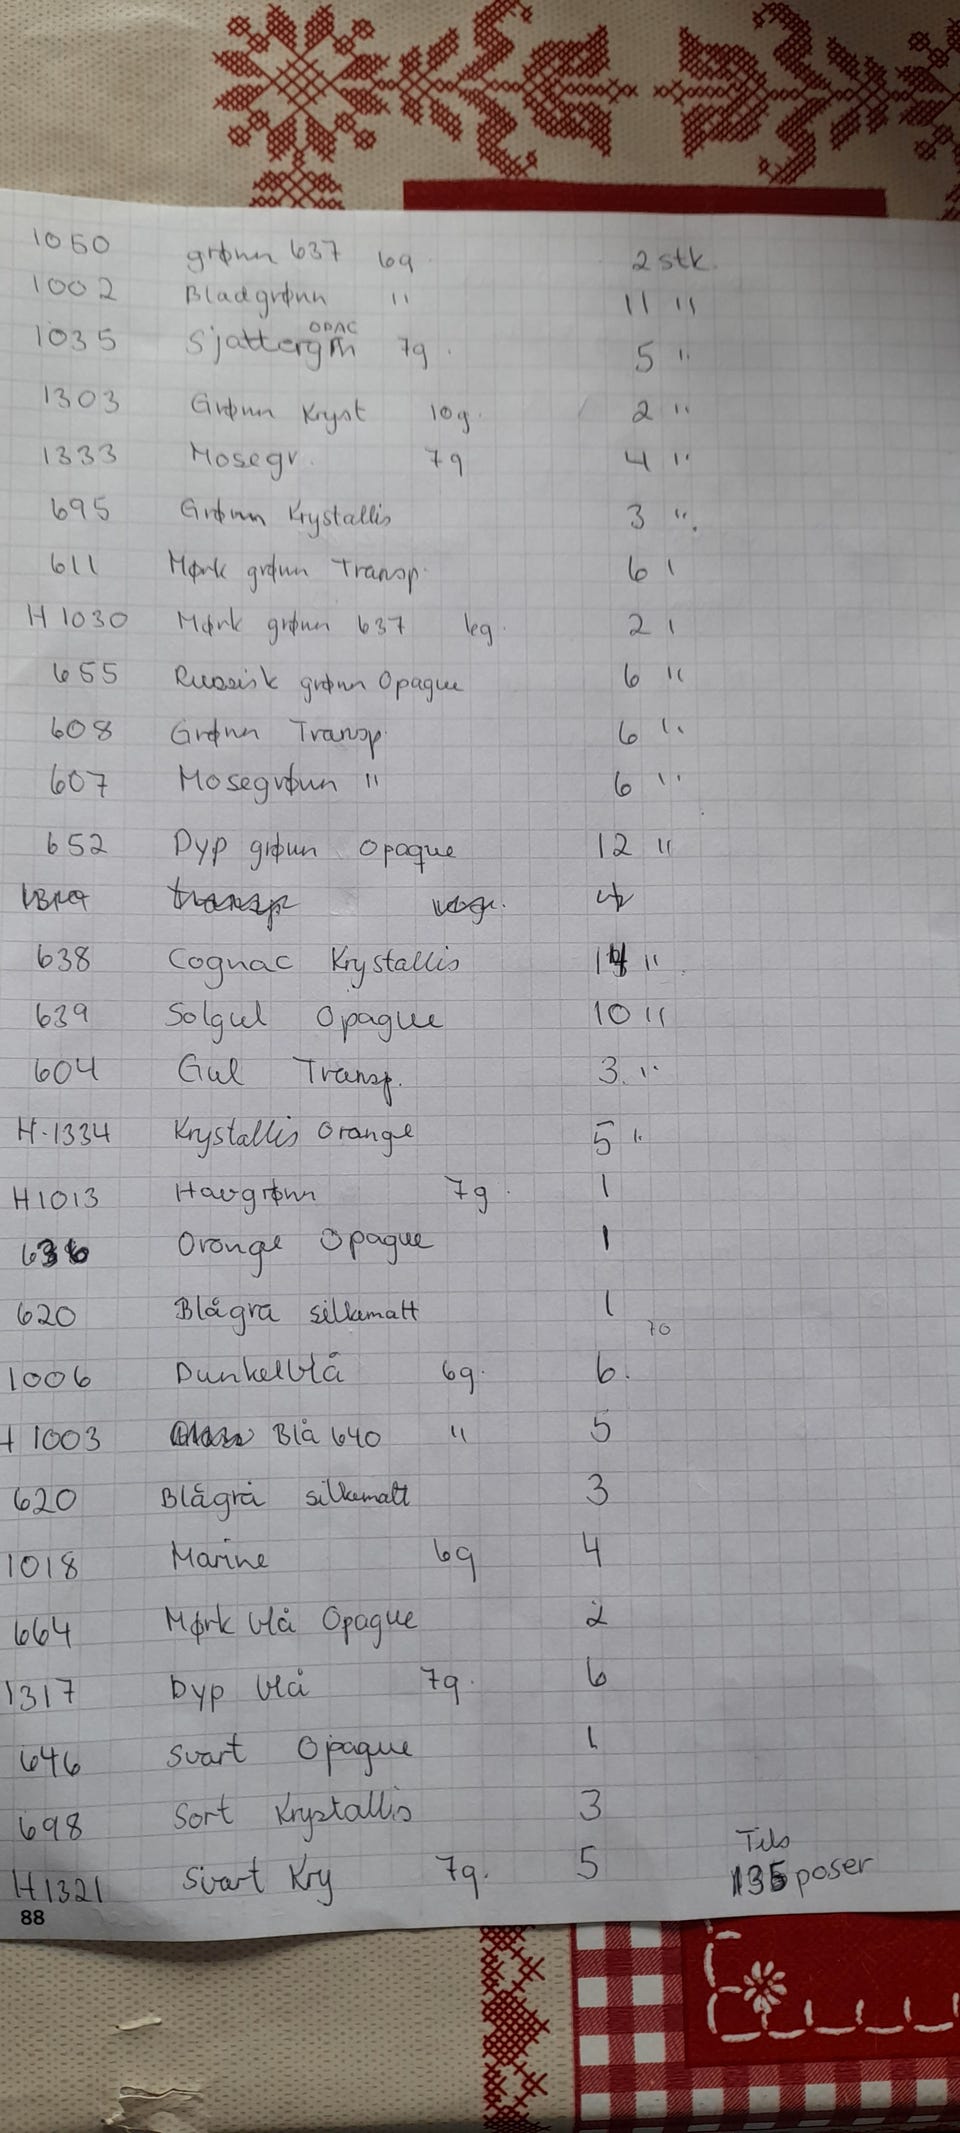 1050 grønn 637 6g. 2 stk.
1002 Bladgrønn " 11 "
1035 Sjattergrn OPAC 7g. 5 "
1303 Grønn Kryst 10g. 2 "
1333 Mosegr. 7g 4 "
695 Grønn Krystallis 3 ".
611 Mørk grønn Transp. 6 '
H 1030 Mørk grønn 637 6g. 2 '
655 Russisk grønn Opaque 6 "
608 Grønn Transp. 6 "
607 Mosegrønn " 6 "
652 Dyp grønn Opaque 12 "
transp
638 Cognac Krystallis 14 "
639 Solgul Opaque 10 "
604 Gul Transp. 3. "
H-1334 Krystallis Orange 5 "
H1013 Havgrønn 7g. 1
636 Orange Opaque 1
620 Blågrå silkematt 1
70
1006 Dunkelblå 6g. 6.
H 1003 Blå 640 " 5
620 Blågrå silkematt 3
1018 Marine 6g 4
664 Mørk blå Opaque 2
1317 Dyp blå 7g. 6
646 Svart Opaque 1
698 Sort Krystallis 3
H1321 Svart Kry 7g. 5
Tils
135 poser
88